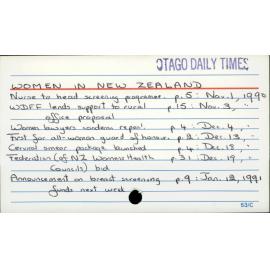 OTAGO DAILY TIMES
WOMEN IN NEW ZEALAND
Nurse to head screening programme. p.5 : Nov. 1, 1990
WDFF lends support to rural p.15 : Nov. 3, "
office proposal
Women lawyers condemn report. p.4 : Dec. 4, "
First for all-woman guard of honour. p.2 : Dec. 13, "
Cervical smear package launched p.4 : Dec. 18, "
Federation (of NZ Womens Health p.31 : Dec. 19, "
Councils) bid
Announcement on breast screening p.9 : Jan. 12, 1991
funds next week
53/C